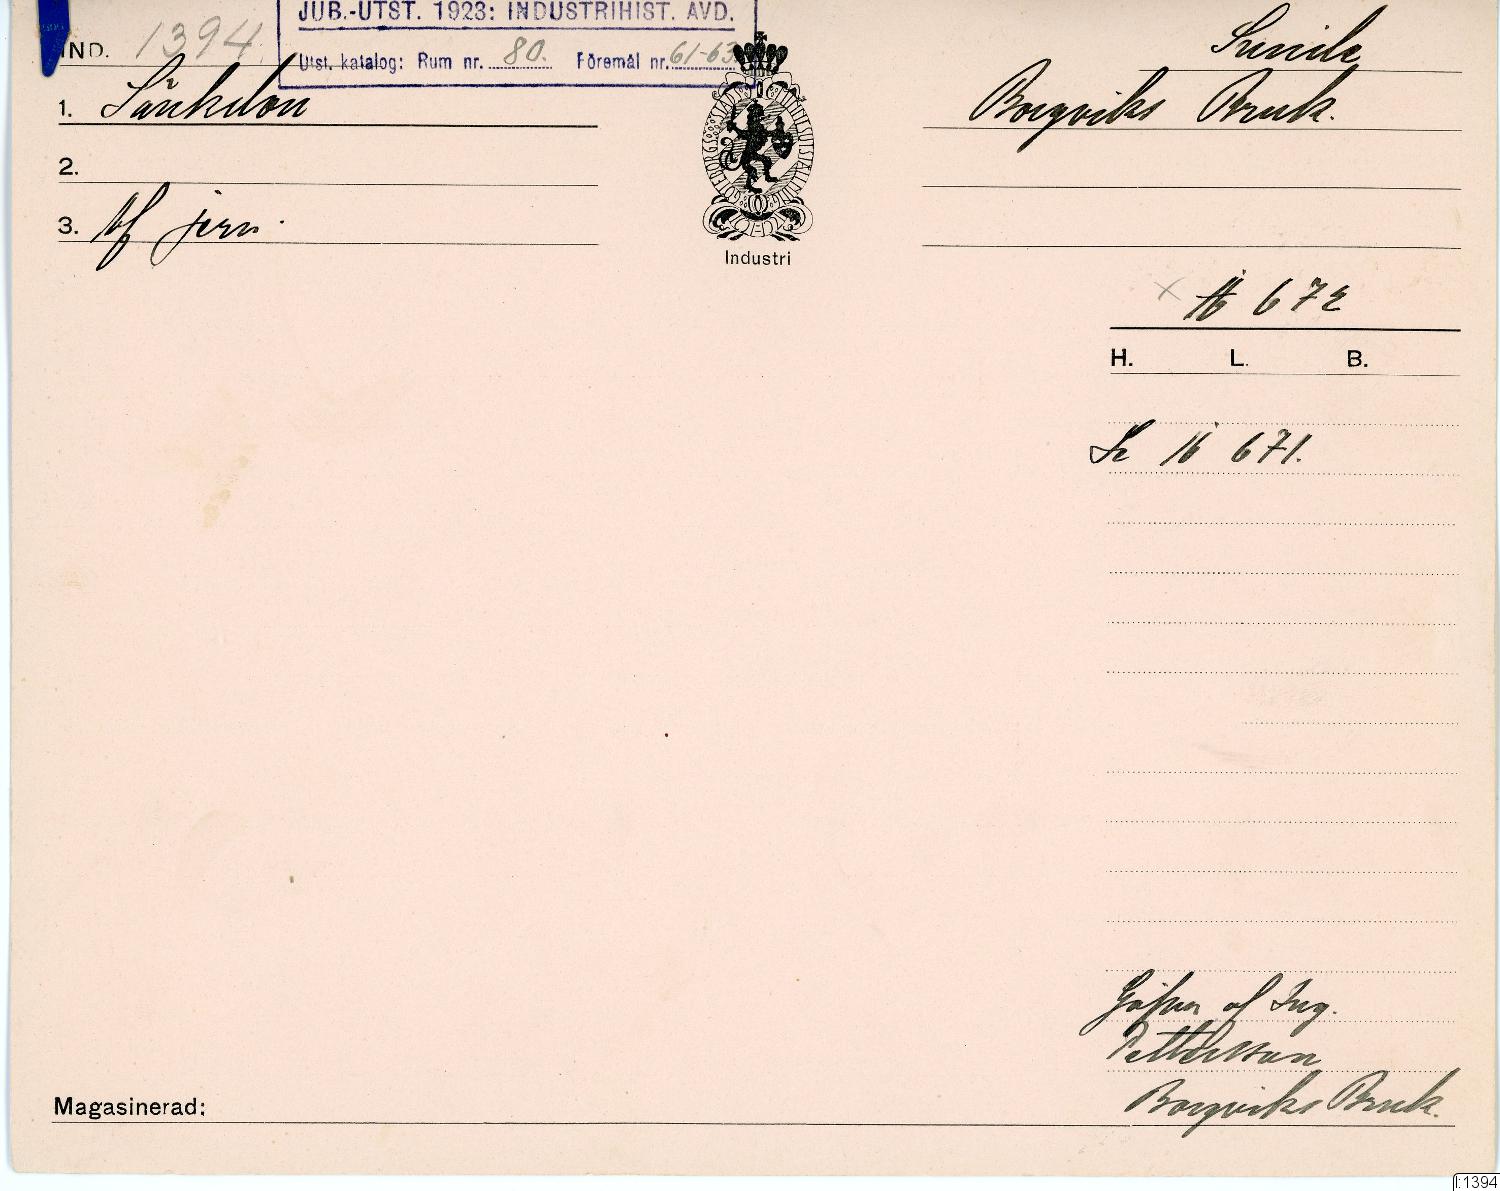 JUB.-UTST. 1923: INDUSTRIHIST. AVD.
Utst. katalog: Rum nr. 80. Föremål nr. 61-63
IND. 1394.
1. Sänkdon
2.
3. Af jern.
GÖTEBORGS STADS JUBILEUMSUTSTÄLLNING
Industri
Smide
Borgviks Bruk.
× № 672
H. L. B.
Se № 671.
Gåfva af Ing.
Pettersson
Borgviks Bruk.
Magasinerad:
I:1394